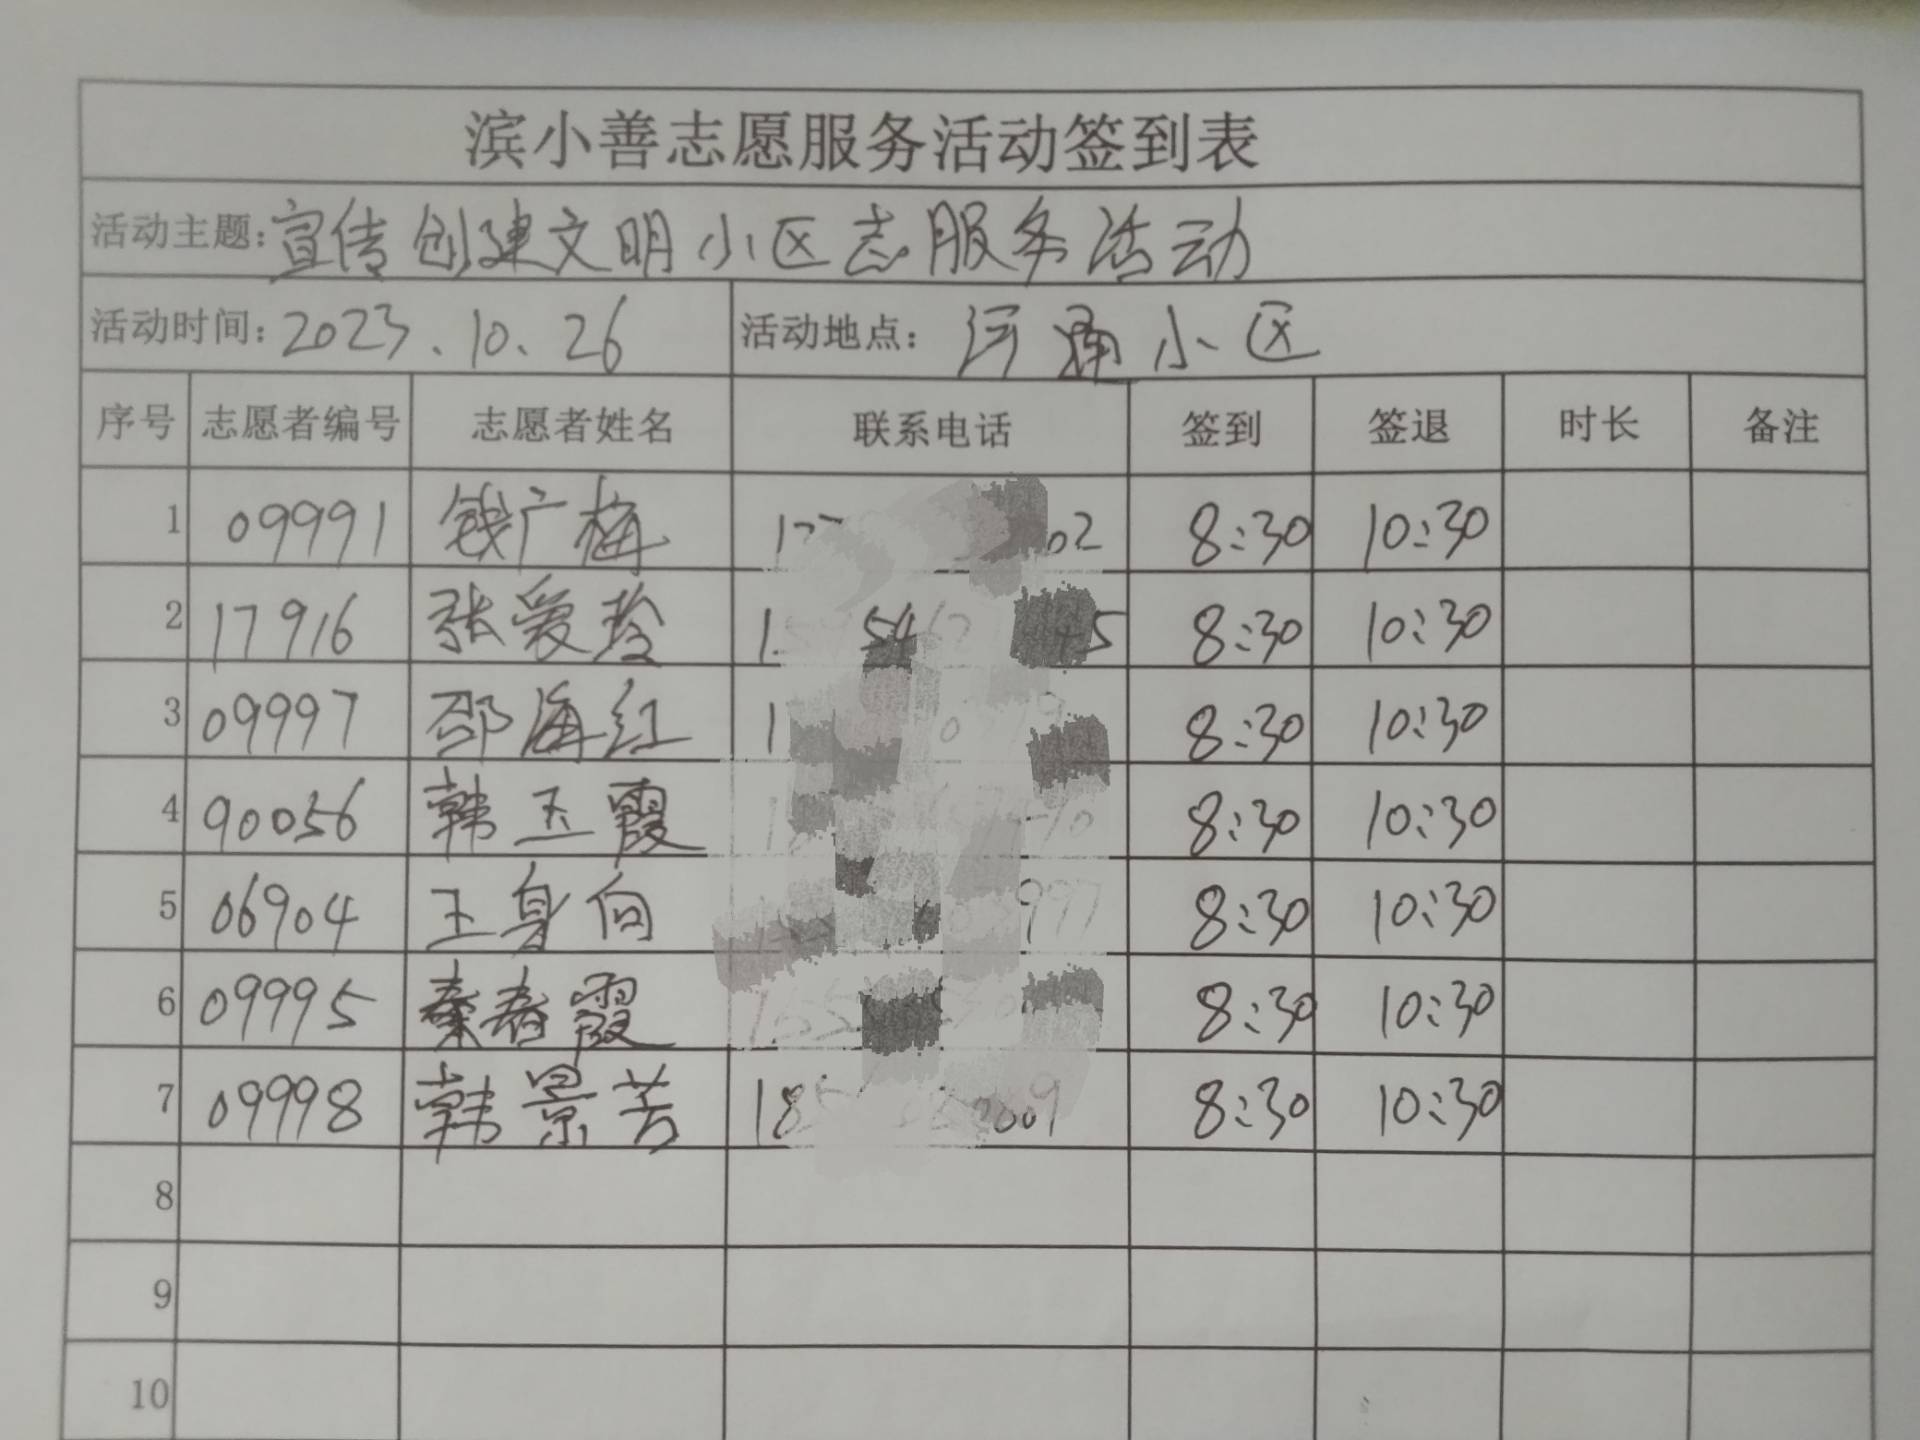 滨小善志愿服务活动签到表
活动主题:宣传创建文明小区志服务活动
活动时间:2023.10.26 活动地点:河通小区
序号 志愿者编号 志愿者姓名 联系电话 签到 签退 时长 备注
1 09991 钱广梅 8:30 10:30
2 17916 张爱玲 8:30 10:30
3 09997 邵海红 8:30 10:30
4 90056 韩玉霞 8:30 10:30
5 06904 王身向 8:30 10:30
6 09995 秦春霞 8:30 10:30
7 09998 韩景芳 8:30 10:30
8
9
10